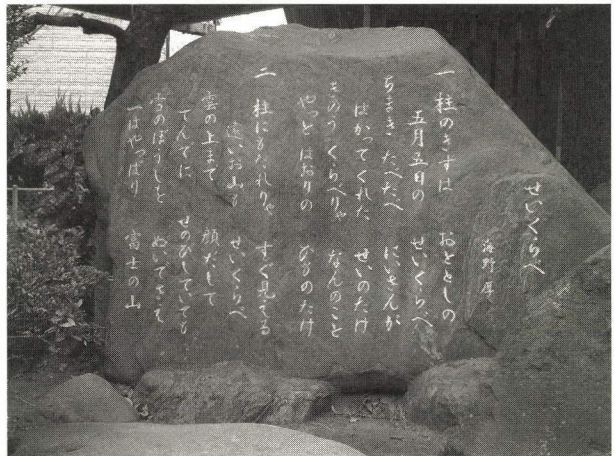 せいくらべ
海野厚
一 柱のきずは おととしの
五月五日の せいくらべ
ちまき たべたべ にいさんが
はかってくれた せいのたけ
きのう くらべりゃ なんのこと
やっと はおりの ひものたけ
二 柱にもたれりゃ すぐ見える
遠いお山も せいくらべ
雲の上まで 顔だして
てんでに せのびしていても
雪のぼうしを ぬいでさえ
一はやっぱり 富士の山